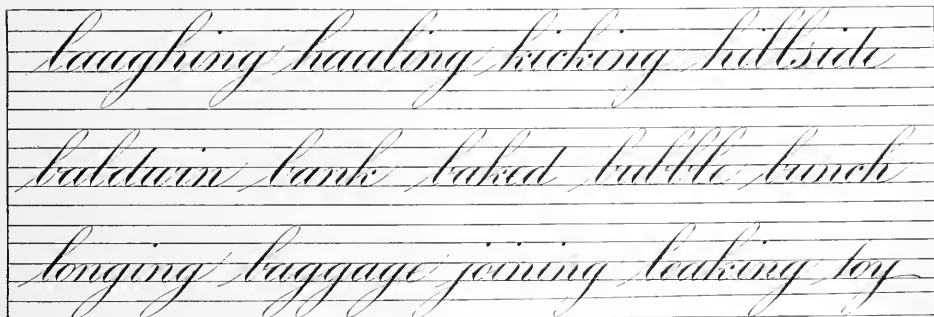 laughing hauling kicking hillside
baldwin bank baked bubble bunch
longing baggage joining leaking toy